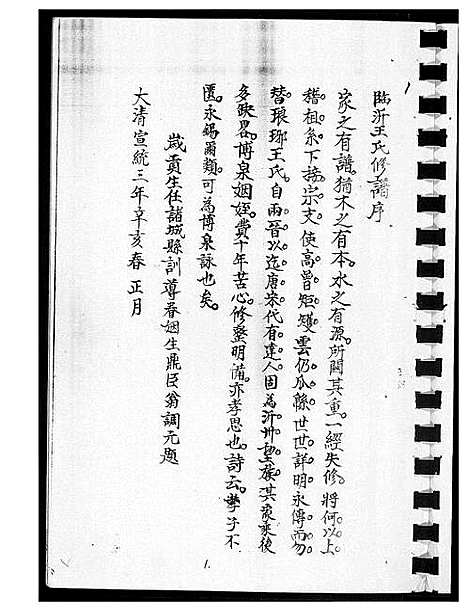 臨沂王氏修譜序
家之有譜。猶木之有本。水之有源。所關其重。一經失修。將何以上
稽祖系下諺宗支。使高曾矩矱。雲仍瓜緜。世世詳明。永傳而勿
替。琅琊王氏。自兩晉以迄唐宋。代有達人。因為沂州望族。其家乘後
多缺畧。博泉姻姪。費千年苦心。修整明備。亦孝思也。詩云。孝子不
匱。永錫爾類。可為博泉詠也矣。
歲貢生任諸城縣訓導眷姻生鼎臣翁調元題
大清宣統三年辛亥春正月
1.